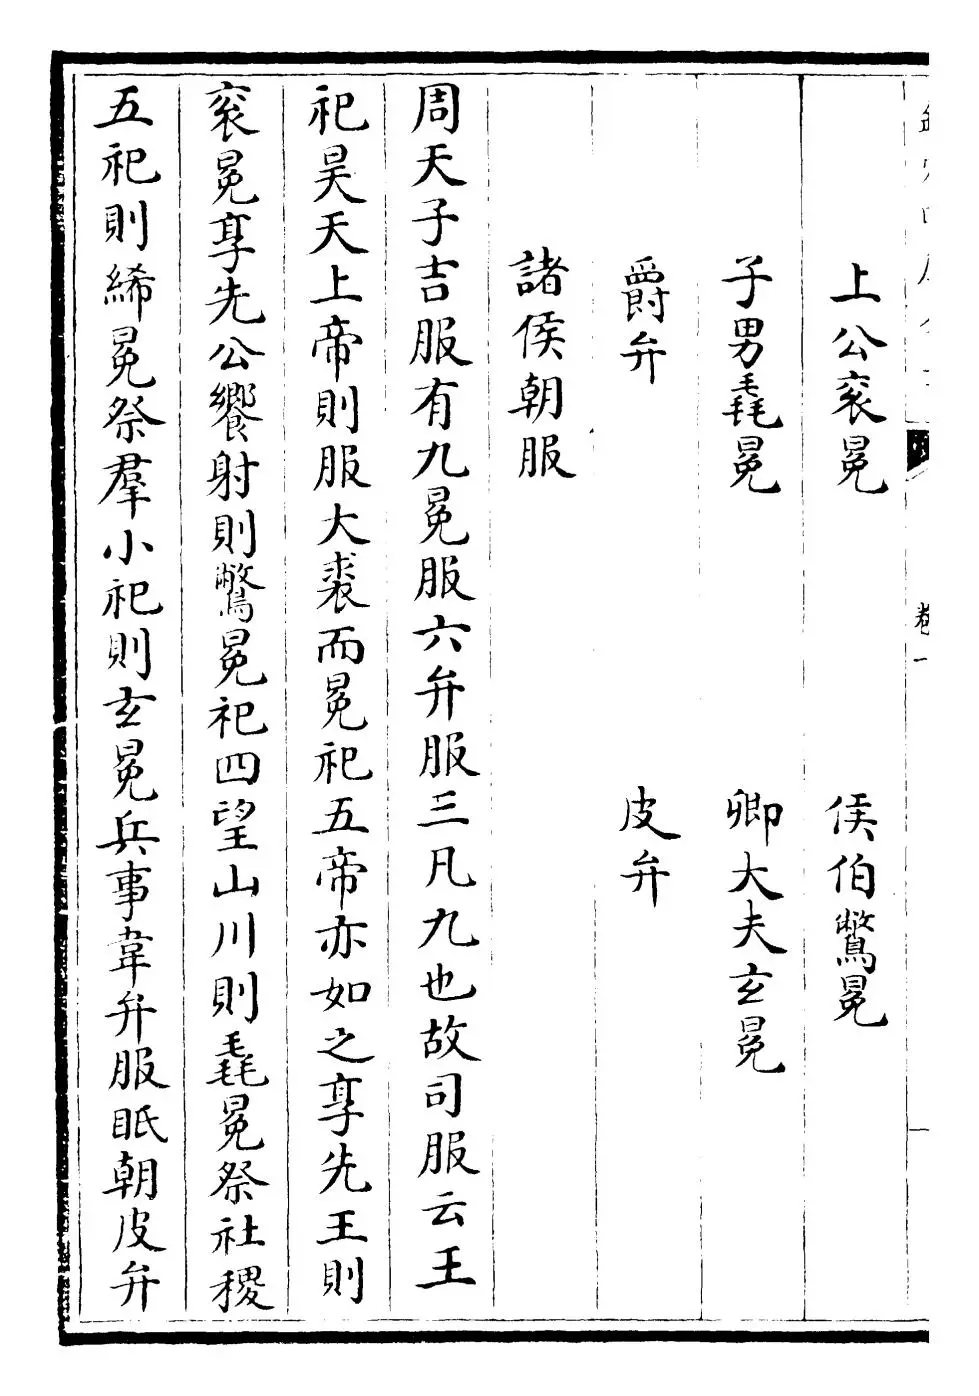 上公衮冕 侯伯鷩冕
子男毳冕 卿大夫玄冕
爵弁 皮弁
諸侯朝服
周天子吉服有九冕服六弁服三凡九也故司服云王
祀昊天上帝則服大裘而冕祀五帝亦如之享先王則
衮冕享先公饗射則鷩冕祀四望山川則毳冕祭社稷
五祀則絺冕祭羣小祀則玄冕兵事韋弁服眡朝皮弁